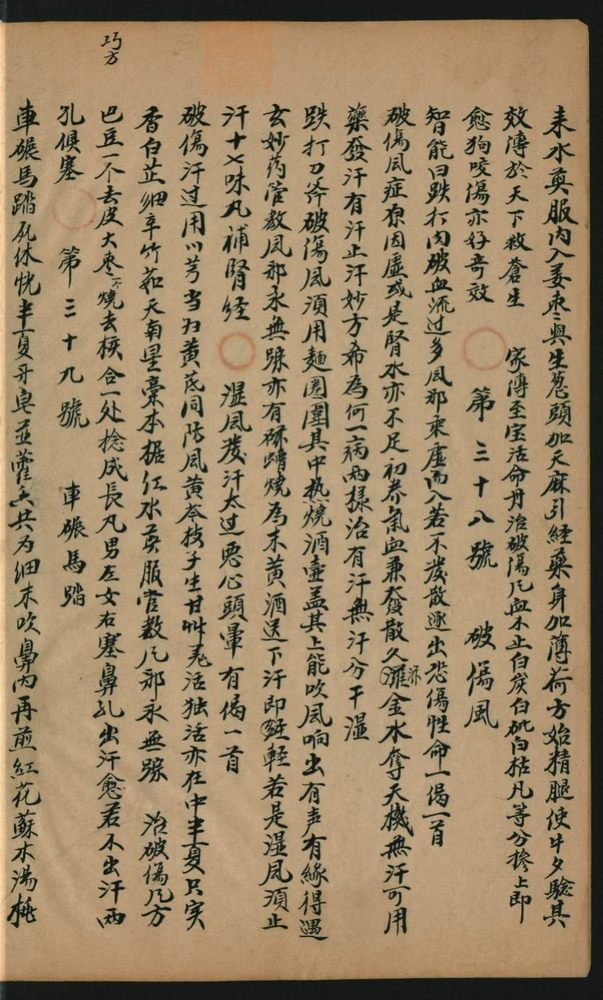 巧方
耒水英服内入姜枣与生葱頭加天麻引経藥身加薄荷方始精腿使牛夕驗其
效傳於天下救蒼生　家傳至宝活命丹治破傷凡血不止白炭白矾白枯凡等分摻上即
愈狗咬傷亦好奇效　○　第三十八號　破傷風
智能曰跌打肉破血流过多风邪乘虚而入若不發散逐出恐傷性命一偈一首
破傷风症原因虚或是腎水亦不足初养氣血兼發散久金水奪天機無汗可用
藥發汗有汗止汗妙方希為何一病两樣治有汗無汗分干湿
跌打刀斧破傷风須用麺圈圍其中热燒酒壺盖其上能吹风响出有声有緣得遇
玄妙葯管教风邪永無踪亦有蟥燒為末黄酒送下汗即輕若是湿风須止
汗十七味丸補腎経　○　湿风發汗太过恶心頭暈有偈一首
破傷汗过用川芎当归黄芪同防风黄芩枝子生甘艸羌活独活亦在中半夏只实
香白芷細辛竹茹天南星藁本桔红水英服管教凡邪永無踪　治破傷凡方
巴豆一个去皮大枣一个燒去核合一处捻成長丸男左女右塞鼻孔出汗愈若不出汗两
孔俱塞　○　第三十九號　車碾馬踏
車碾馬踏死休恍半夏牙皂並藿香共为細末吹鼻内再煎紅花蘇木湯桃